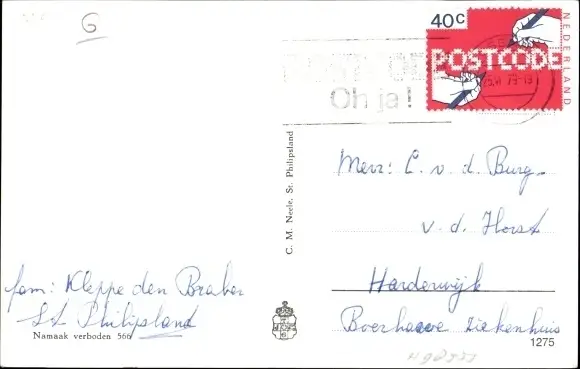 6
40c
POSTCODE
NEDERLAND
Oh ja!
C. M. Neele, St. Philipsland
Mevr: C. v. d. Burg-
v. d. Horst
Harderwijk
Boerhaave Ziekenhuis
fam: Kleppe den Braber
St Philipsland
Namaak verboden 566
1275